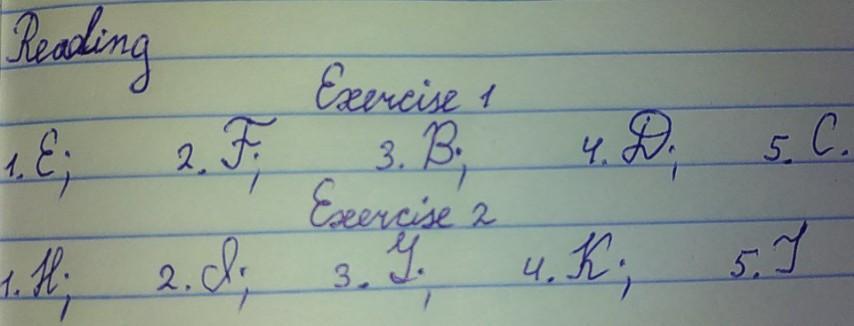 Reading
Exercise 1
1. E; 2. F; 3. B; 4. D; 5. C.
Exercise 2
1. H; 2. 3. 4. K; 5. J